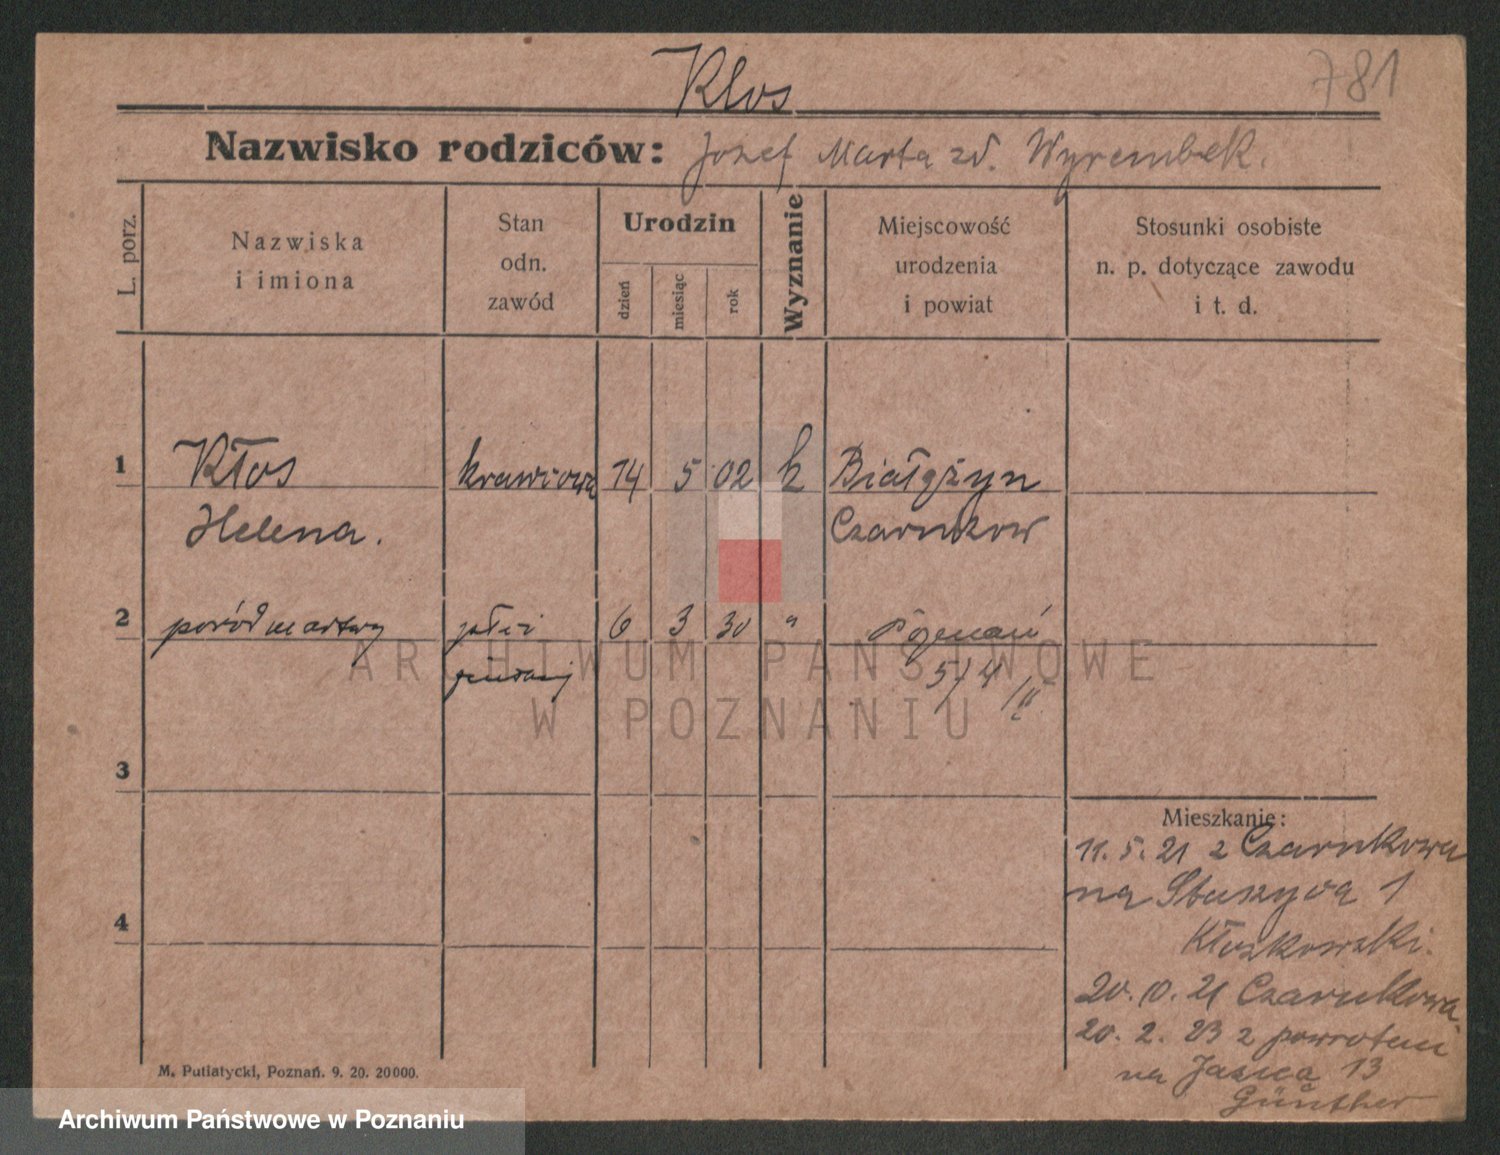 Kłos
781
Nazwisko rodziców: Jozef Marta zd. Wyrembek.
L. porz.
Nazwiska i imiona
Stan odn. zawód
Urodzin
dzień
miesiąc
rok
Wyznanie
Miejscowość urodzenia i powiat
Stosunki osobiste n. p. dotyczące zawodu i t. d.
1 Kłos krawcowa 14 5 02 k Białężyn
Helena. Czarnkow
2 poród martwy płci 6 3 30 " Poznań
5/4
3
4
Mieszkanie:
11. 5. 21 z Czarnkowa
na 1
Kłoskowski.
20. 10. 21 Czarnkowa
20. 2. 23 z powrotem
na Jasna 13
Günther
M. Putiatycki, Poznań. 9. 20. 20000.
ARCHIWUM PAŃSTWOWE
W POZNANIU
Archiwum Państwowe w Poznaniu